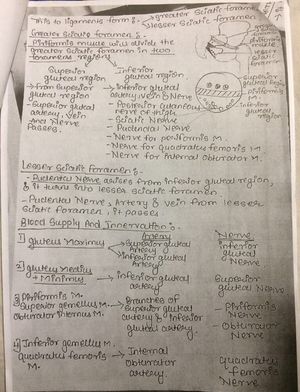 This to ligaments form :- greater Sciatic foramen
lesser Sciatic foramen.
Greater Sciatic foramen :-
- Piriformis muscle will divide the
greater sciatic foramen in two
region
Superior gluteal region
Inferior gluteal region
→ From Superior gluteal region
→ Inferior gluteal artery, vein & Nerve
- Superior gluteal artery, vein
And Nerve passes.
- Posterior cutaneous nerve of thigh
- Sciatic Nerve
- Pudendal Nerve
- Nerve for piriformis M.
- Nerve for quadratus femoris M
- Nerve for internal obturator M.
Lesser Sciatic Foramen :-
- Pudental Nerve arises from inferior gluteal region
& it turn into lesser Sciatic foramen.
- Pudental Nerve, Artery & Vein from lesser
Sciatic foramen, it passes.
Blood Supply And Innervation :-
Artery
Nerve
1) gluteus Maximus → Superior gluteal Artery
inferior gluteal Artery
inferior gluteal Nerve
2) gluteus Medius + Minimus → inferior gluteal artery.
Superior gluteal Nerve
3) Piriformis M.
Superior gemellus M.
Obturator internus M.
→ Branches of Superior gluteal artery & inferior gluteal artery.
Piriformis Nerve
Obturator Nerve
4) Inferior gemellus M.
quadratus femoris M.
→ Internal Obturator artery.
quadratus femoris Nerve